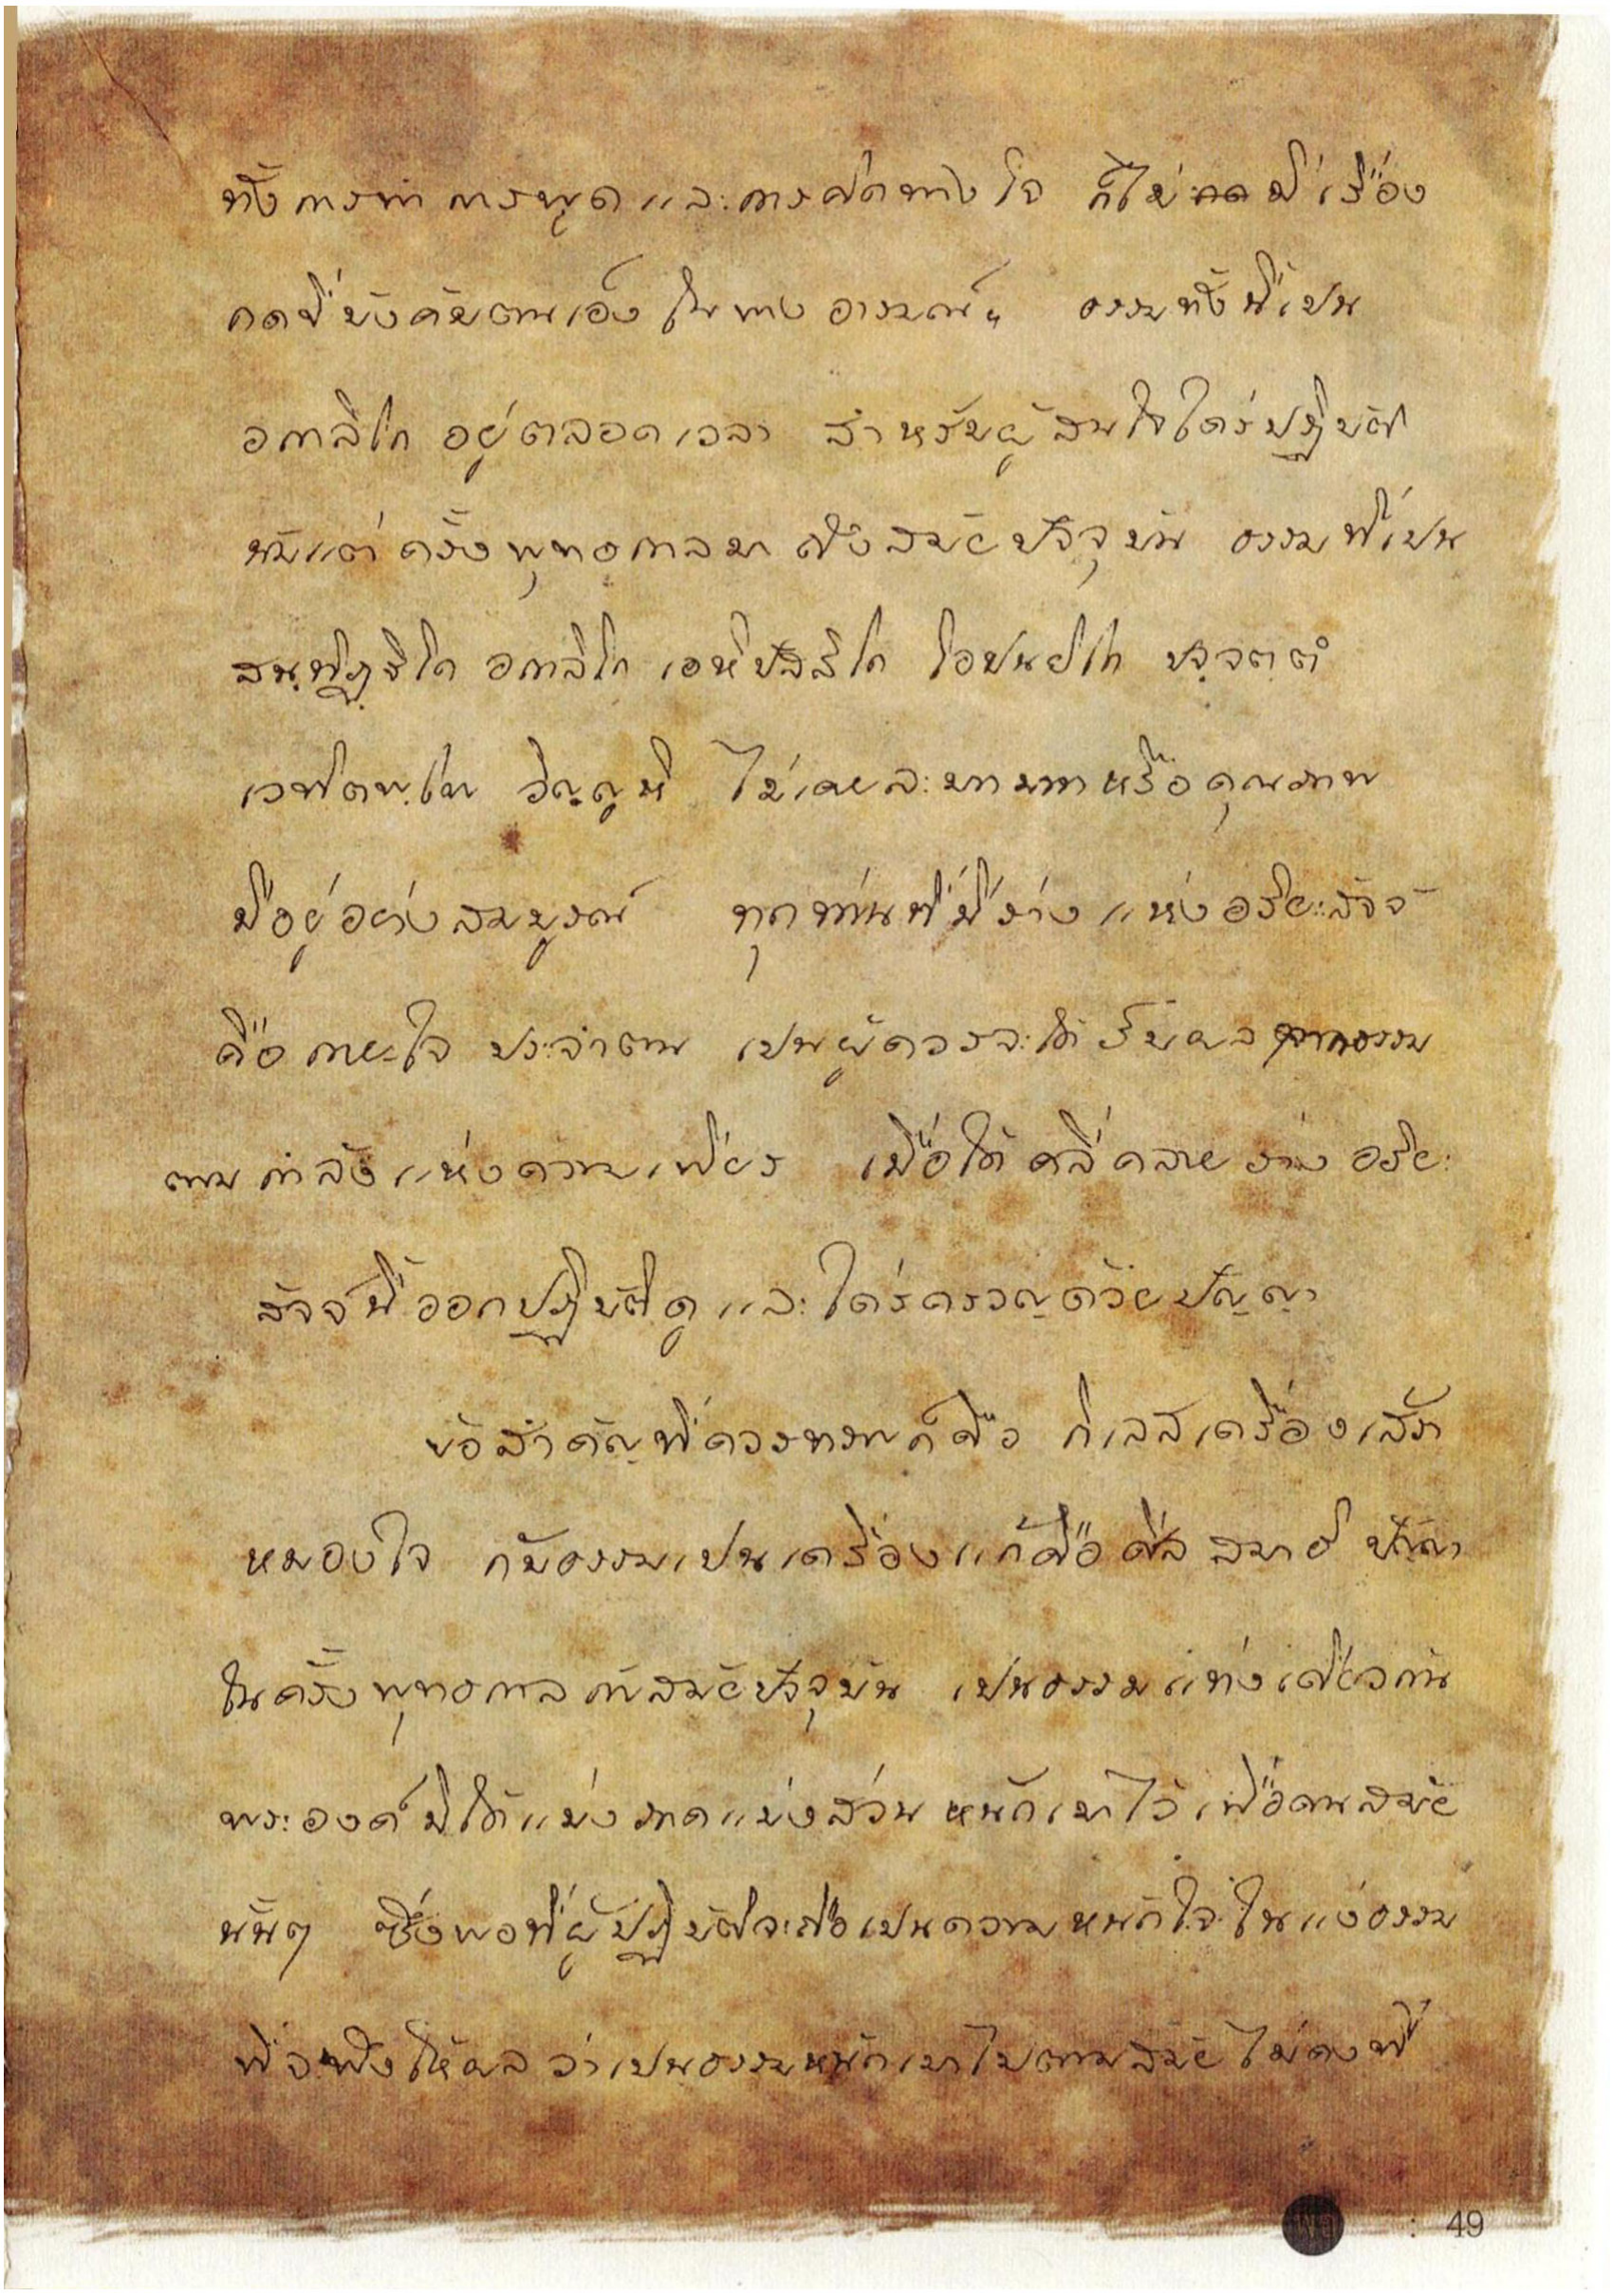 ทั้งการทำ การพูด และการคิดทางใจ ก็ไม่กดมีเรื่อง
กดขี่บังคับตนเองในทางอารมณ์ๆ ธรรมทั้งนี้เป็น
อกาลิโก อยู่ตลอดเวลา สำหรับผู้สนใจใคร่ปฏิบัติ
นับแต่ครั้งพุทธกาลมาถึงสมัยปัจจุบัน ธรรมที่เป็น
สนฺทิฏฺฐิโก อกาลิโก เอหิปัสสิโก โอปนยิโก ปจฺจตฺตํ
เวทิตพฺโพ วิญฺญูหิ ไม่เคยละบทบาทหรือคุณภาพ
มีอยู่อย่างสมบูรณ์ ทุกท่านที่มีร่างแห่งอริยะสัจจ์
คือกายะใจ ประจำตน เป็นผู้ควรจะได้รับผลจากธรรม
ตามกำลังแห่งความเพียร เมื่อได้คลี่คลายร่างอริยะ
สัจจ์นี้ออกปฏิบัติดู และใคร่ครวญด้วยปัญญา
ข้อสำคัญที่ควรทราบก็คือ กิเลสเครื่องเศร้า
หมองใจ กับธรรมเป็นเครื่องแก้คือศีล สมาธิ ปัญญา
ในครั้งพุทธกาลกับสมัยปัจจุบัน เป็นธรรมแท่งเดียวกัน
พระองค์มิได้แบ่งภาคแบ่งส่วนหนักเบาไว้เพื่อคนสมัย
นั้นๆ ซึ่งพอที่ผู้ปฏิบัติจะถือเป็นความหนักใจในแง่ธรรม
ที่จะพึงให้ผล ว่าเป็นธรรมหนักเบาไปตามสมัย ไม่คงที่
49